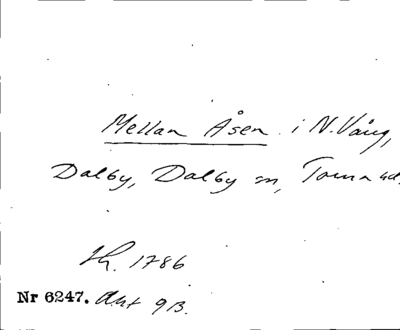 Mellan Åsen i N. Vång,
Dalby, Dalby sn, Torna hd.
1786
Nr 6247. Akt 9 B.